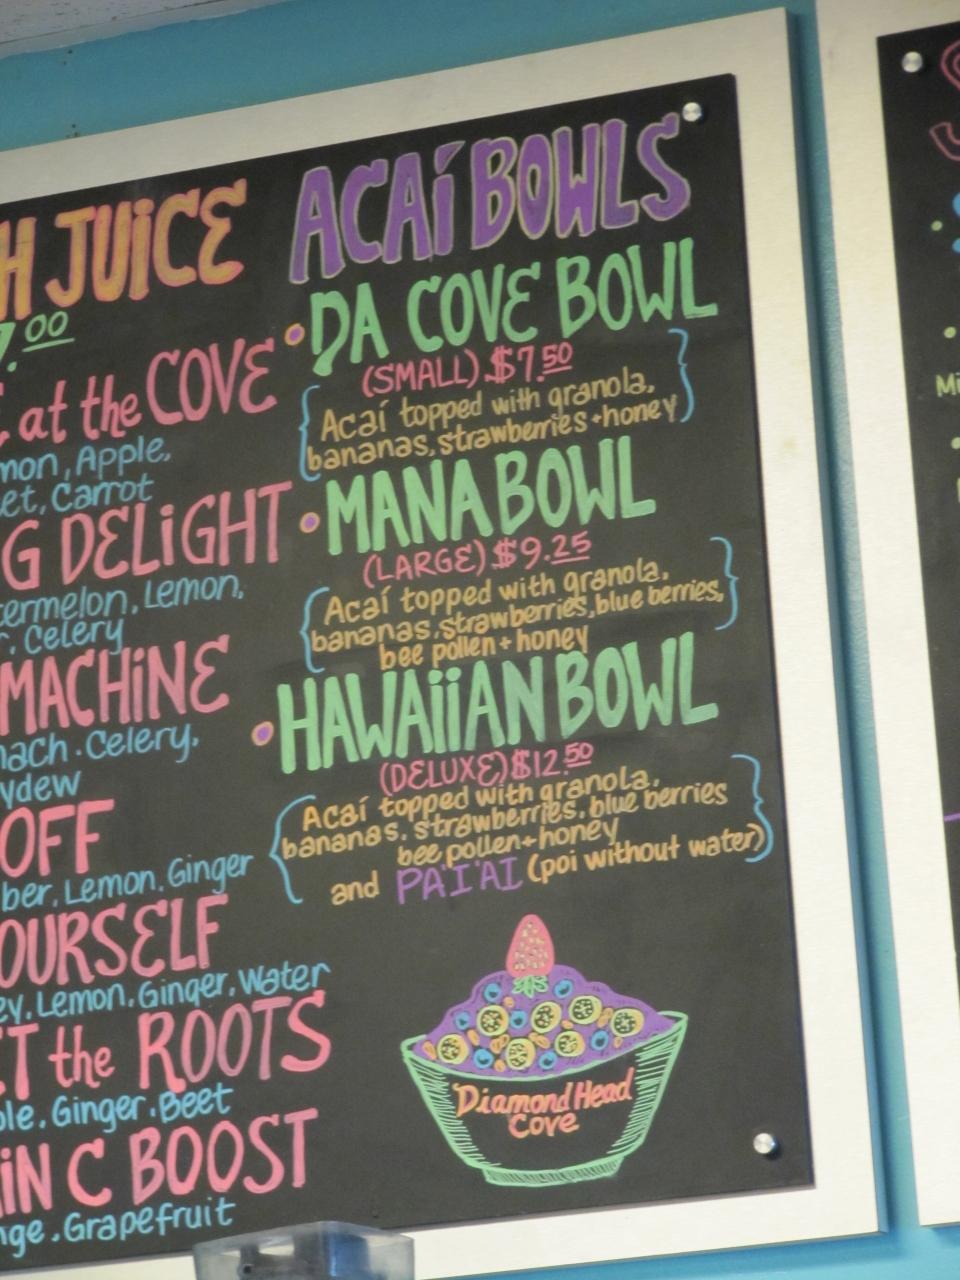 JUICE
7.00
at the COVE
Apple,
Carrot
DELIGHT
Lemon,
Celery
MACHINE
Celery,
OFF
Lemon, Ginger
Lemon, Ginger, Water
the ROOTS
Ginger, Beet
C BOOST
Grapefruit
ACAÍ BOWLS
• DA COVE BOWL
(SMALL) $7.50
{Acaí topped with granola,
bananas, strawberries + honey}
• MANA BOWL
(LARGE) $9.25
{Acaí topped with granola,
bananas, strawberries, blue berries,
bee pollen + honey}
• HAWAiiAN BOWL
(DELUXE) $12.50
{Acaí topped with granola,
bananas, strawberries, blue berries
bee pollen + honey
and PA'I'AI (poi without water)}
Diamond Head
Cove